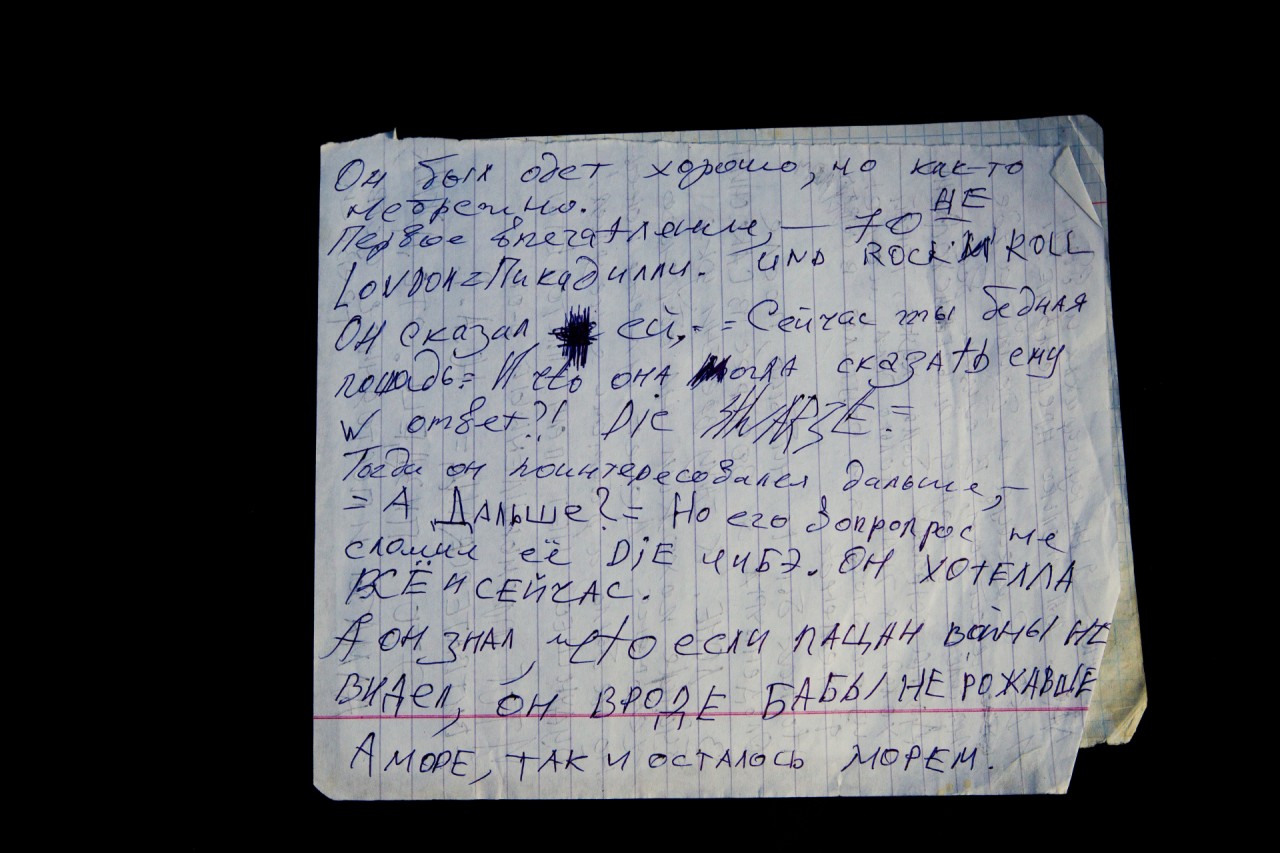 Он был одет хорошо, но как-то
небрежно.
Первое впечатление, — 70 НЕ
LONDON=Пикадилли. UND ROCK'N ROLL
ОН сказал ей, - = Сейчас ты бедная
лошадь= И что она могла сказать ему
W ответ?! Die
Тогда он поинтересовался дальше, —
= А Дальше? = Но его вопропрос не
сломил её DiE ЛИБЭ. ОН ХОТЕЛЛА
ВСЁ И СЕЙЧАС.
А ОН ЗНАЛ, что если ПАЦАН ВОЙНЫ НЕ
ВИДЕЛ, ОН ВРОДЕ БАБЫ НЕ РОЖАВШЕ
А МОРЕ, ТАК И ОСТАЛОСЬ МОРЕМ.